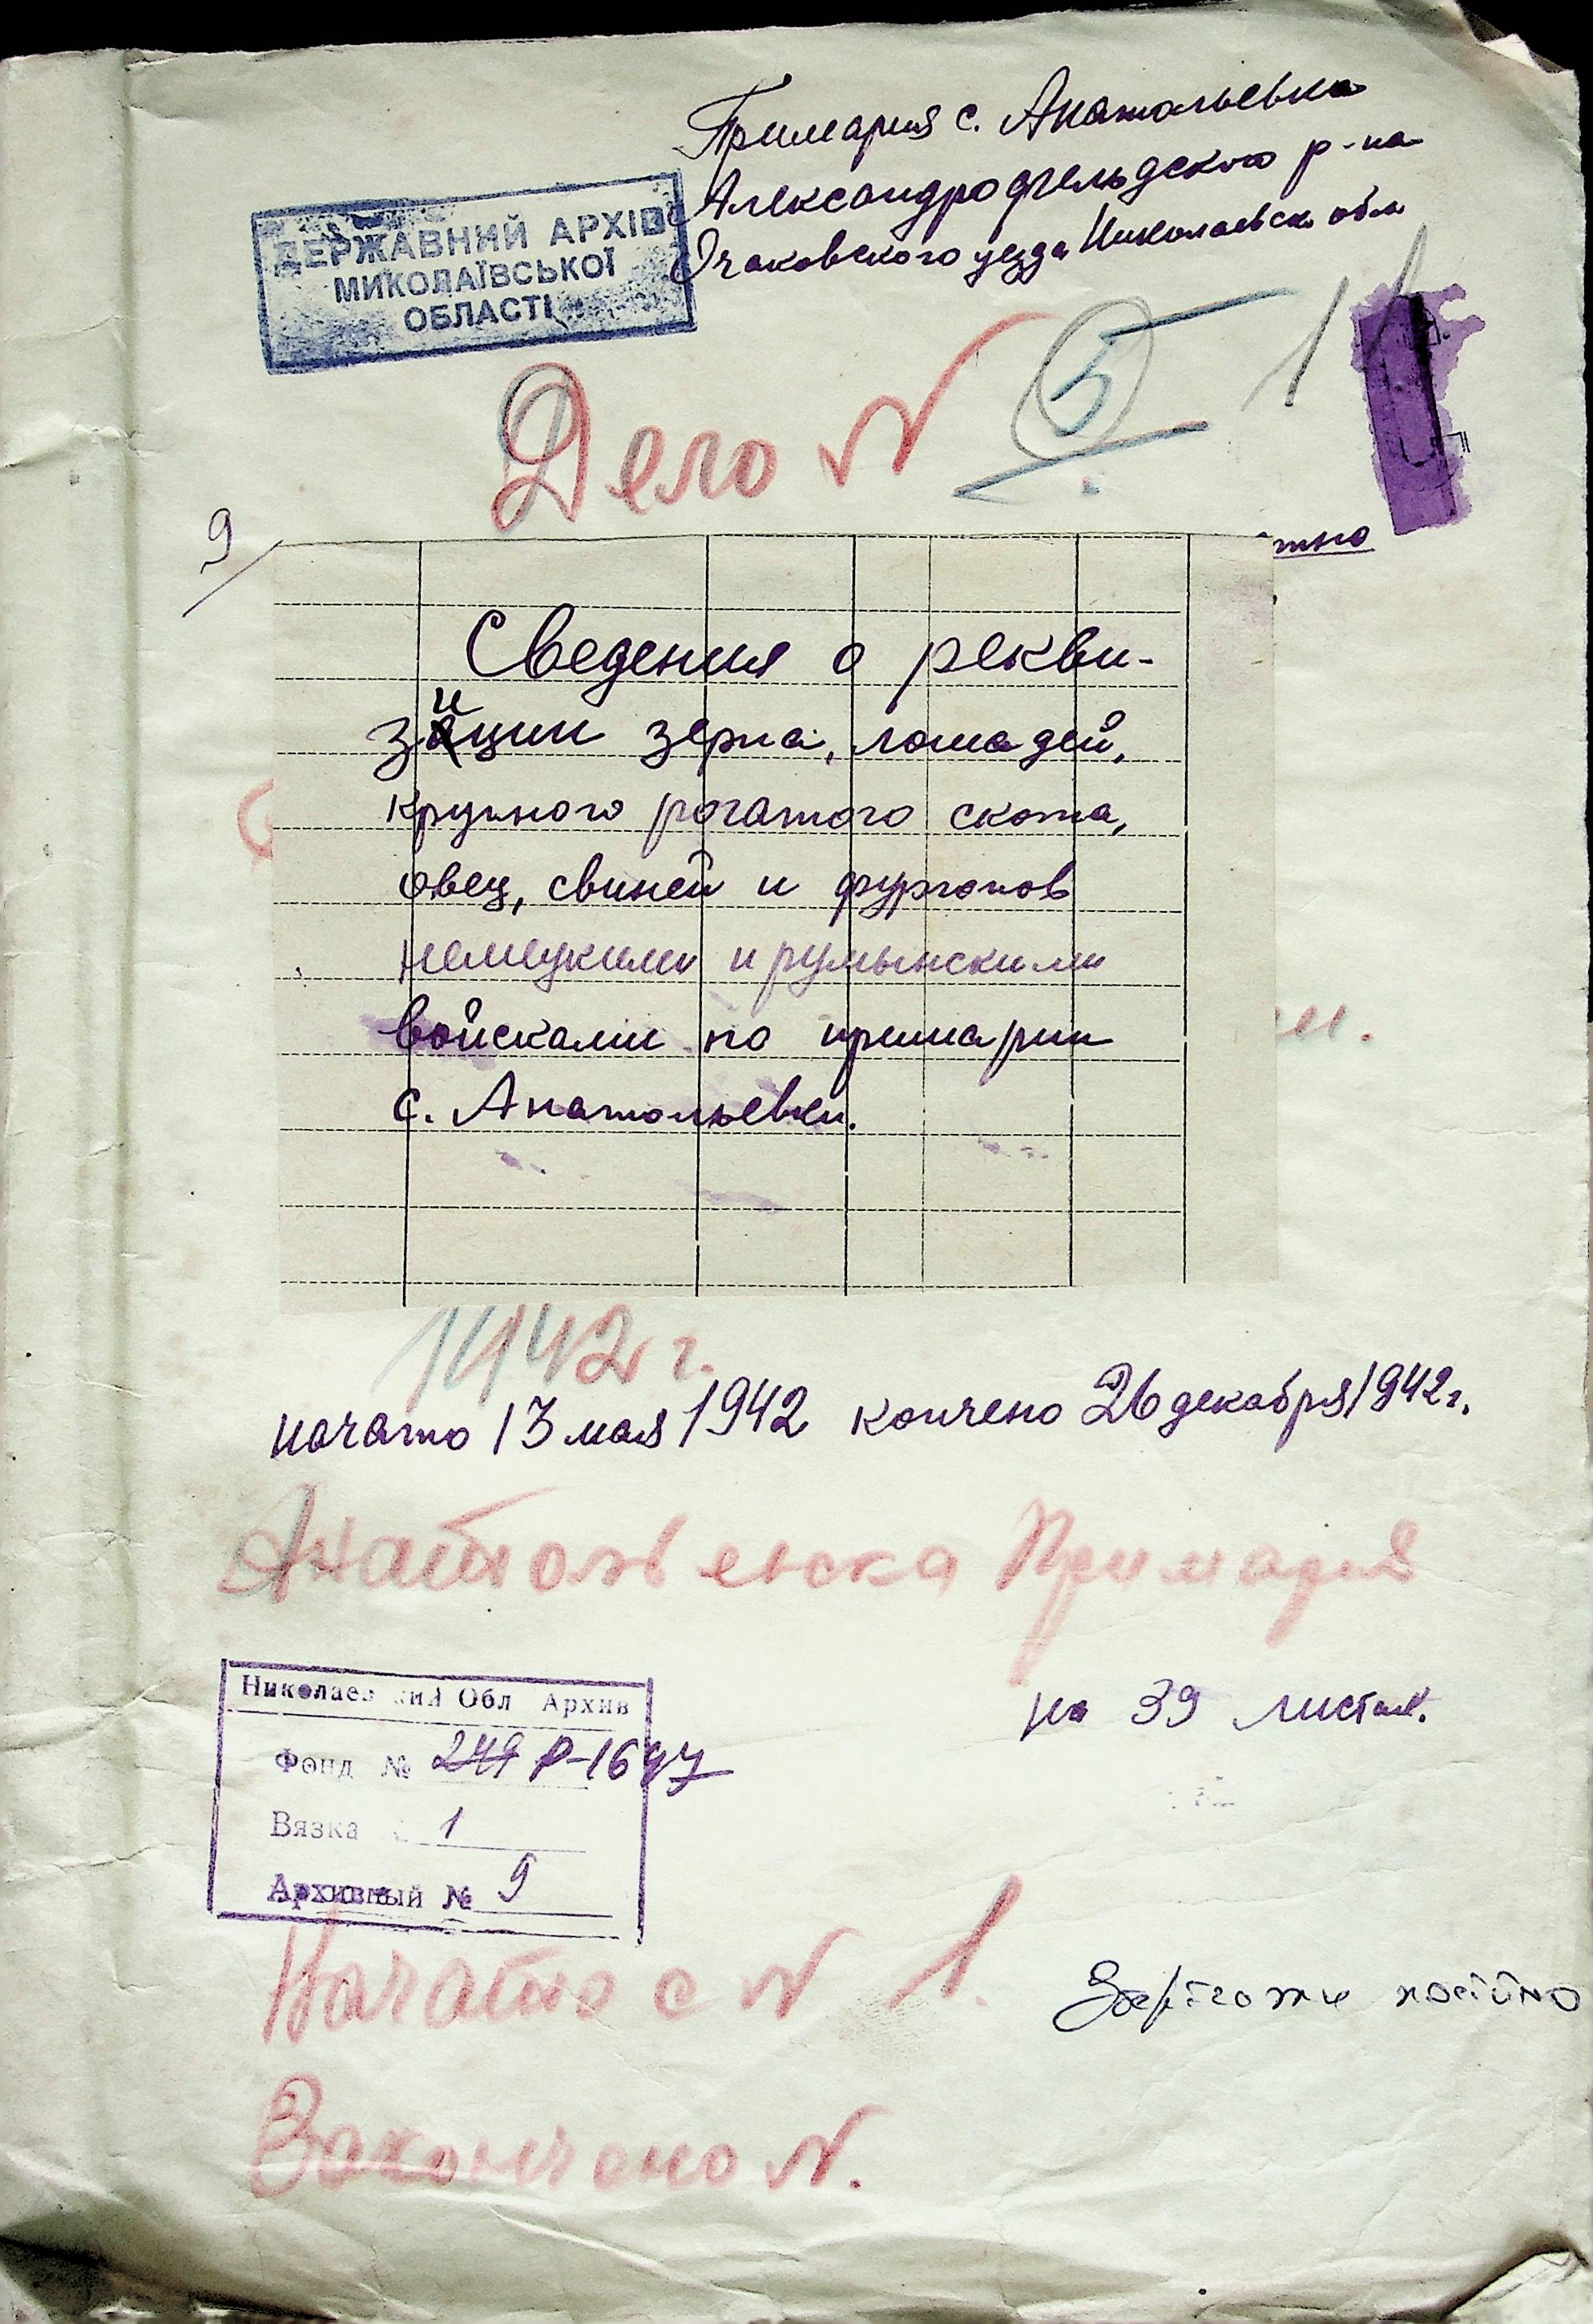 Примария с. Анатольевка
Александрофельдского р-на
Очаковского уезда Николаевск. обл
ДЕРЖАВНИЙ АРХІВ
МИКОЛАЇВСЬКОЇ
ОБЛАСТІ
Дело №
5
1
9
тно
Сведения о рекви-
зиции зерна, лошадей,
крупного рогатого скота,
овец, свиней и фургонов
немецкими и румынскими
войсками по примарии
с. Анатольевки.
1942 г.
начато 13 мая 1942 кончено 26 декабря 1942 г.
Анатольевска Примария
на 39 листах.
Николаевский Обл Архив
Фонд № 249 Р-1697
Вязка 1
Архивный № 9
Начатно с № 1.
Зберігати постійно
Закончено №.